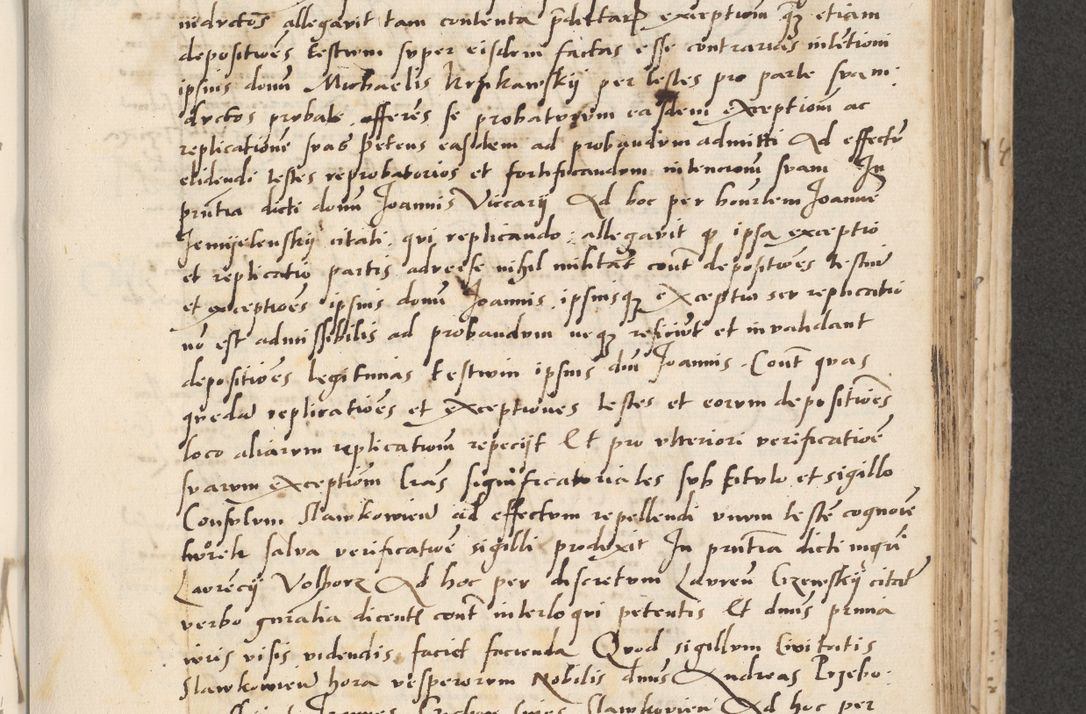 ineductos allegavit tam contenta prdictar exeptionu qz etiam
depositiones testium super eisdem factas esse contrarias intentioni
ipsius domi Michaelis per testes pro parte suam
ductos probate offeres se probaturum easdem exeption ac
replicatione suas petens easdem ad probandum admitti Ad effectu
elidendi testes reprobatorios et fortificandum intencionem suam In
pntia dicti domi Joannis Viccarij Ad hoc per honestem Joanne
citati qui replicando allegavit q ipsa exceptio
et replicatio partis adverse nihil militat cont depositiones testiu
et exceptioes ipsius domi Joannis ipsiusqz exceptio seu replicatio
no est admissibilis ad probandum neqz reficiut et invalidant
depositioes legitimas testium ipsius dni Joannis Cont quas
queda replicatioes et exceptiones testes et eorum depositioes
loco aliarum replicationu repecijt Et pro ulteriori verificatioe
suarum exceptionu lras significatoriales sub titulo et sigillo
Consulum Slawkowien ad effectum repellendi unum teste cognoie
salva verificatioe sigilli produxit In pntia dicti
Laurecij Ad hoc per discretum Lauren citat
verbo gnralia dicent cont interloqui petentis Et dnus
iuris visis videndis faciet facienda Quod sigillum Civitatis
Slawkowien hora vesperorum Nobilis dnus Andreas
Joannes Slawkovien Ad hoc per